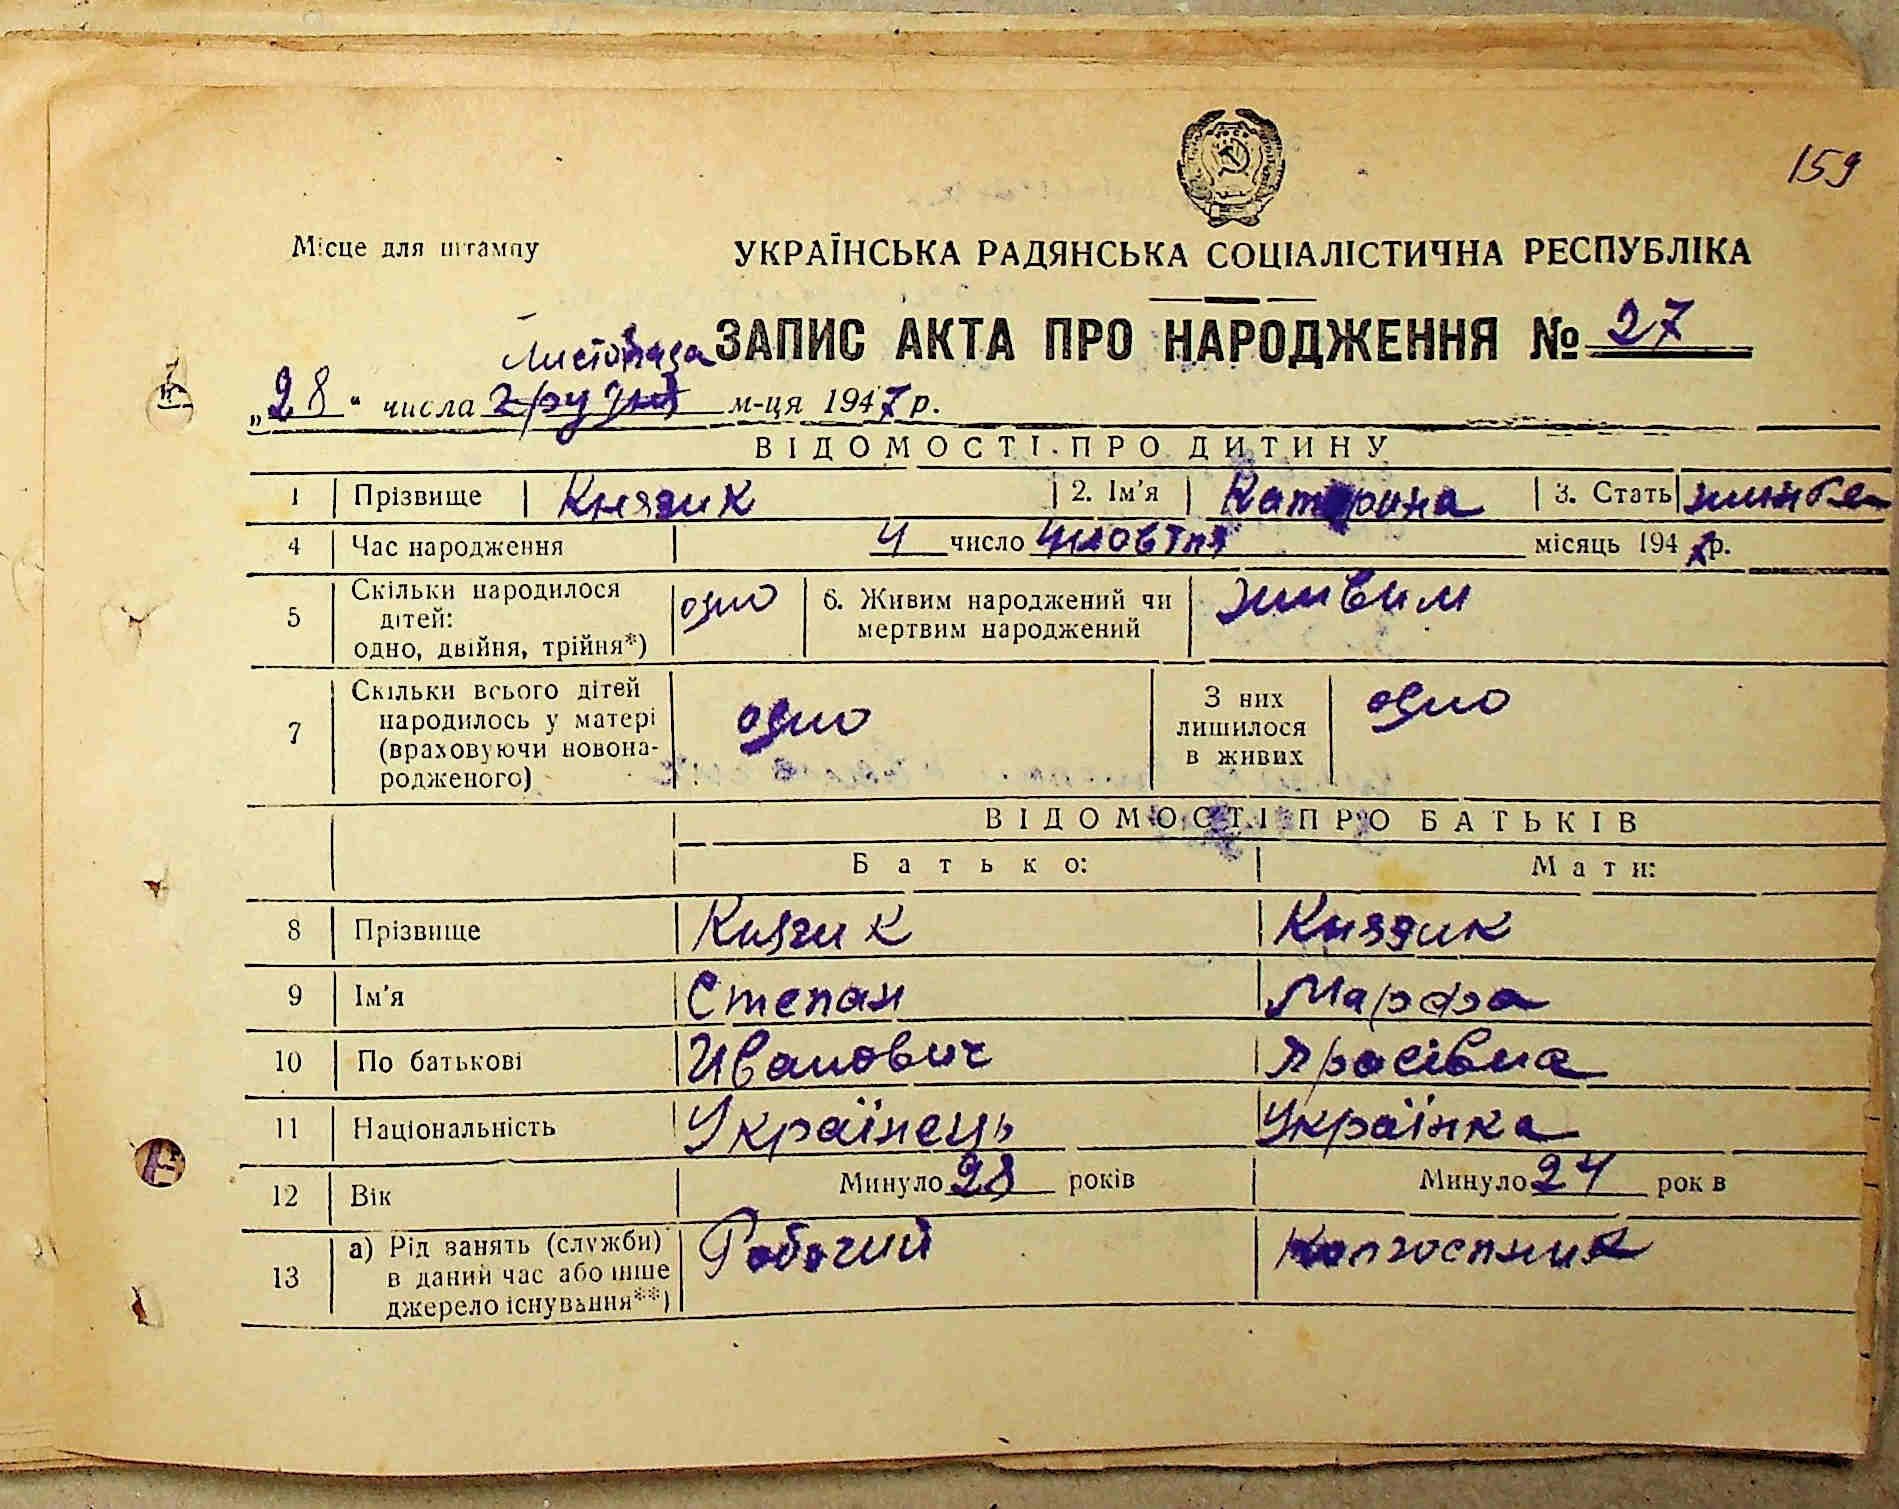 159
Місце для штампу
УКРАЇНСЬКА РАДЯНСЬКА СОЦІАЛІСТИЧНА РЕСПУБЛІКА
ЗАПИС АКТА ПРО НАРОДЖЕННЯ № 27
Листопада
„28“ числа грудня м-ця 1947 р.
ВІДОМОСТІ ПРО ДИТИНУ
1 Прізвище Князик 2. Ім'я Катерина 3. Стать
4 Час народження 4 число жовтня місяць 1947 р.
5 Скільки народилося дітей: одно, двійня, трійня*) одно 6. Живим народжений чи мертвим народжений живим
7 Скільки всього дітей народилось у матері (враховуючи новонародженого) одно З них лишилося в живих одно
ВІДОМОСТІ ПРО БАТЬКІВ
Батько: Мати:
8 Прізвище Князик Князик
9 Ім'я Степан Марфа
10 По батькові Иванович
11 Національність Українець Українка
12 Вік Минуло 28 років Минуло 24 років
13 а) Рід занять (служби) в даний час або інше джерело існування**) Робочий Колгоспник